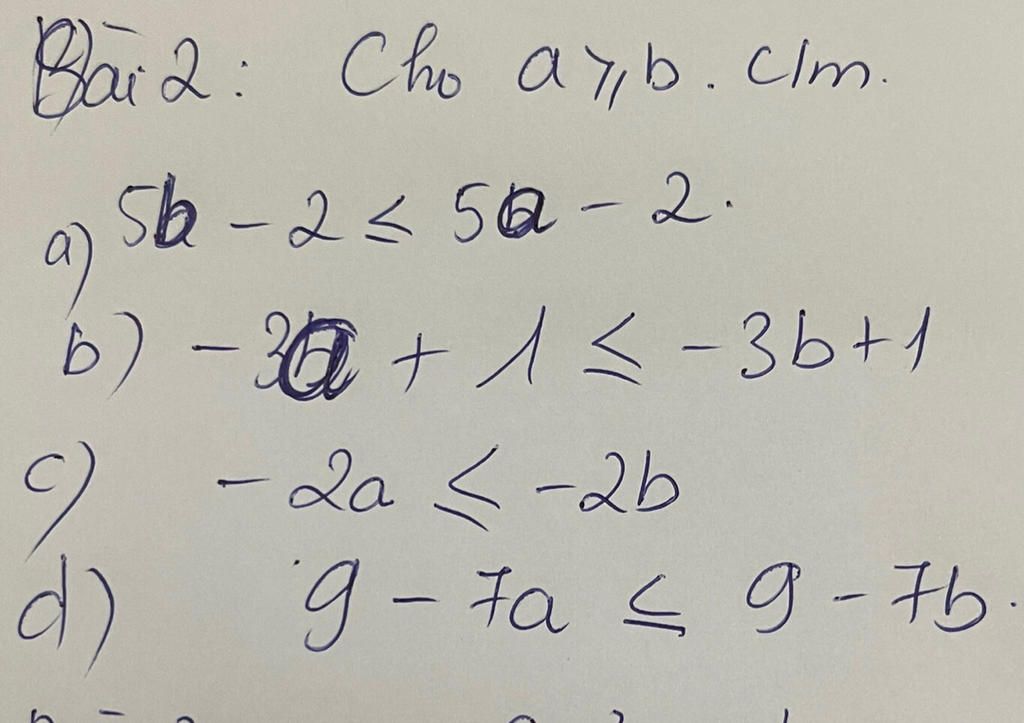 Bài 2: Cho a ⩾ b. C/m.
a) 5b - 2 ≤ 5a - 2.
b) - 3a + 1 ≤ - 3b + 1
c) - 2a ≤ - 2b
d) 9 - 7a ≤ 9 - 7b.